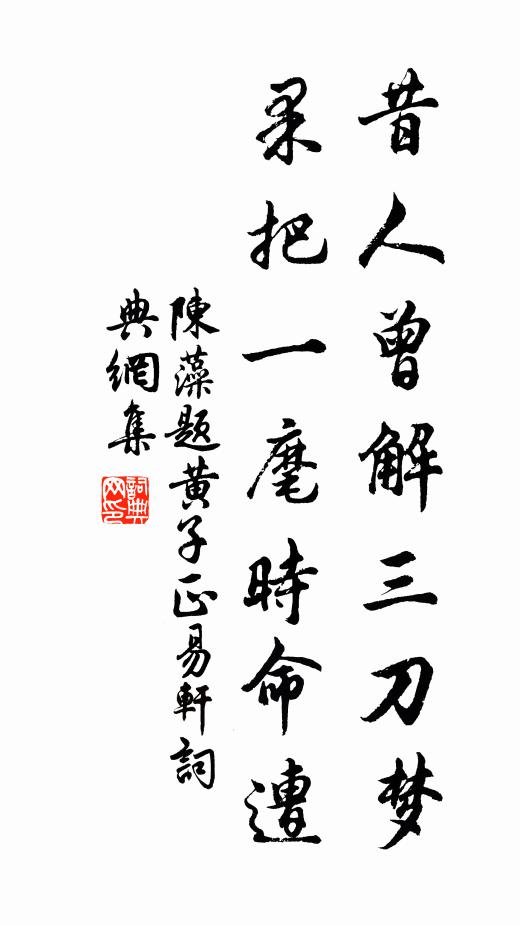 昔人曾解三刀梦
果把一麾時命遭
陳藻题黄子正易軒詞
典網集
詞典網印